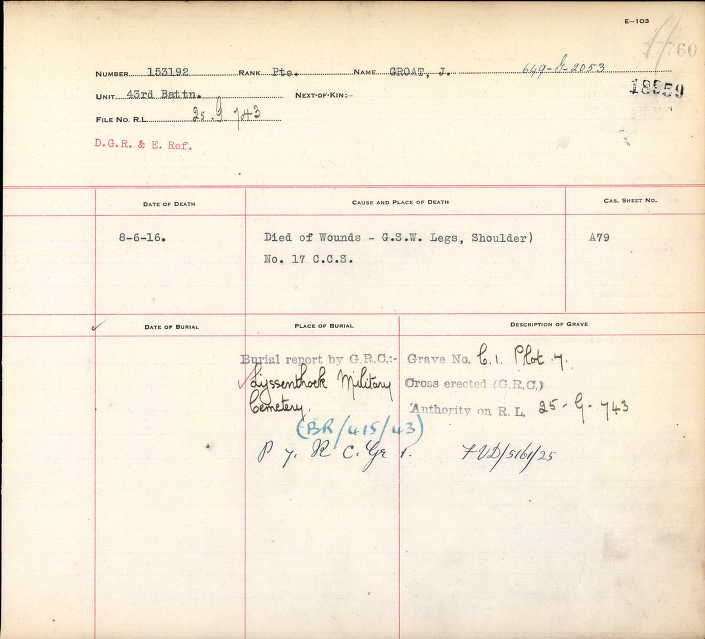 E-103
760
NUMBER 153192 RANK Pte. NAME GROAT, J. 649-G-2053
18959
UNIT 43rd Battn. NEXT-OF-KIN:-
FILE NO. R.L. 25-G-743
D.G.R. & E. Ref.
DATE OF DEATH CAUSE AND PLACE OF DEATH CAS. SHEET NO.
8-6-16. Died of Wounds - G.S.W. Legs, Shoulder) A79
No. 17 C.C.S.
DATE OF BURIAL PLACE OF BURIAL DESCRIPTION OF GRAVE
Burial report by G.R.C:- Grave No. C.1. Plot 7.
Lijssenthoek Military Cross erected (G.R.C.)
Cemetery. Authority on R.L. 25-G-743
(BR/415/43)
P 7. R C. Gr 1.